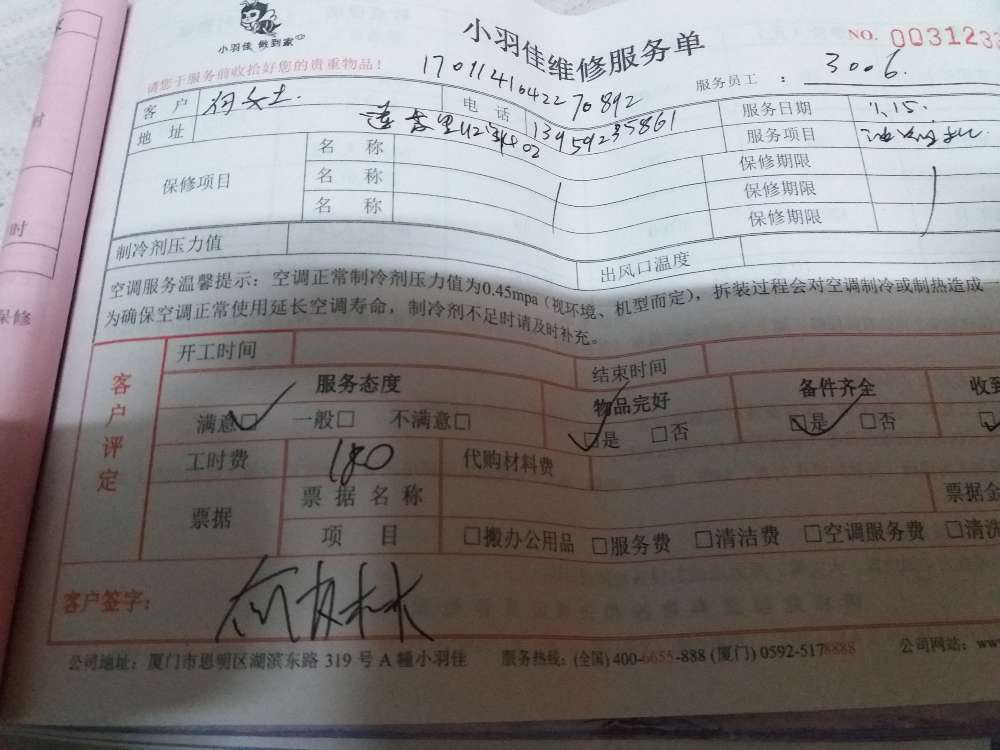 小羽佳 做到家
小羽佳维修服务单
NO. 0031233
请您于服务前收拾好您的贵重物品！
1701141042270892
服务员工 ： 3006.
客 户 女士.
电 话 13959235861
服务日期 1.15.
地 址
服务项目 油烟机
保修项目
名 称 保修期限
名 称 保修期限
名 称 保修期限
制冷剂压力值
出风口温度
空调服务温馨提示：空调正常制冷剂压力值为0.45mpa（视环境、机型而定），拆装过程会对空调制冷或制热造成
为确保空调正常使用延长空调寿命，制冷剂不足时请及时补充。
客户评定
开工时间
结束时间
服务态度
物品完好
备件齐全
收到
满意□ 一般□ 不满意□
□是 □否
□是 □否
工时费 180
代购材料费
票据
票据名称
票据金
项 目
□搬办公用品 □服务费 □清洁费 □空调服务费 □清洗
客户签字：
公司地址：厦门市思明区湖滨东路 319 号 A 幢小羽佳
服务热线：(全国) 400-6655-888 (厦门) 0592-5178888
公司网站：ww
时
时
保修